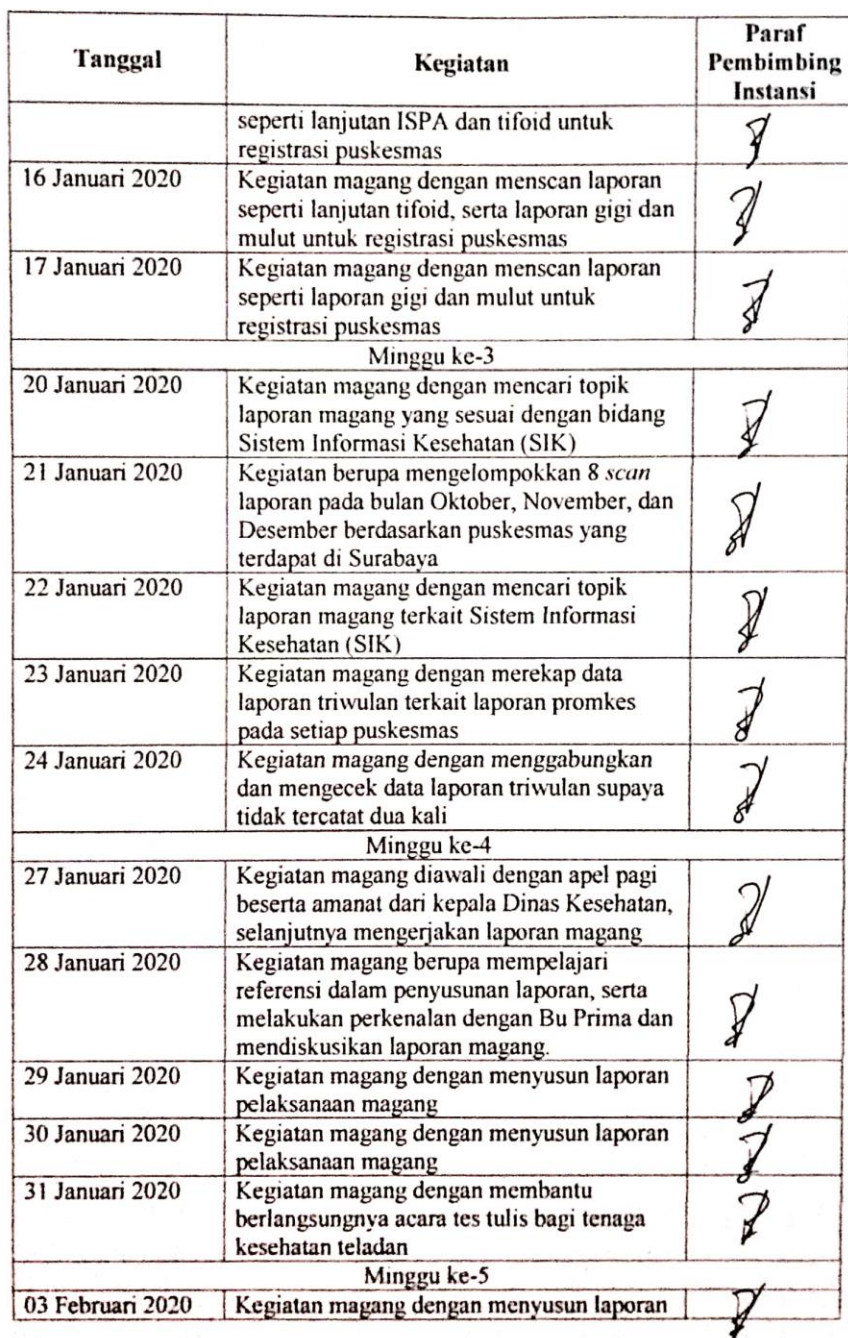 Tanggal
Kegiatan
Paraf
Pembimbing
Instansi
seperti lanjutan ISPA dan tifoid untuk
registrasi puskesmas
16 Januari 2020
Kegiatan magang dengan menscan laporan
seperti lanjutan tifoid, serta laporan gigi dan
mulut untuk registrasi puskesmas
17 Januari 2020
Kegiatan magang dengan menscan laporan
seperti laporan gigi dan mulut untuk
registrasi puskesmas
Minggu ke-3
20 Januari 2020
Kegiatan magang dengan mencari topik
laporan magang yang sesuai dengan bidang
Sistem Informasi Kesehatan (SIK)
21 Januari 2020
Kegiatan berupa mengelompokkan 8 scan
laporan pada bulan Oktober, November, dan
Desember berdasarkan puskesmas yang
terdapat di Surabaya
22 Januari 2020
Kegiatan magang dengan mencari topik
laporan magang terkait Sistem Informasi
Kesehatan (SIK)
23 Januari 2020
Kegiatan magang dengan merekap data
laporan triwulan terkait laporan promkes
pada setiap puskesmas
24 Januari 2020
Kegiatan magang dengan menggabungkan
dan mengecek data laporan triwulan supaya
tidak tercatat dua kali
Minggu ke-4
27 Januari 2020
Kegiatan magang diawali dengan apel pagi
beserta amanat dari kepala Dinas Kesehatan,
selanjutnya mengerjakan laporan magang
28 Januari 2020
Kegiatan magang berupa mempelajari
referensi dalam penyusunan laporan, serta
melakukan perkenalan dengan Bu Prima dan
mendiskusikan laporan magang.
29 Januari 2020
Kegiatan magang dengan menyusun laporan
pelaksanaan magang
30 Januari 2020
Kegiatan magang dengan menyusun laporan
pelaksanaan magang
31 Januari 2020
Kegiatan magang dengan membantu
berlangsungnya acara tes tulis bagi tenaga
kesehatan teladan
Minggu ke-5
03 Februari 2020
Kegiatan magang dengan menyusun laporan